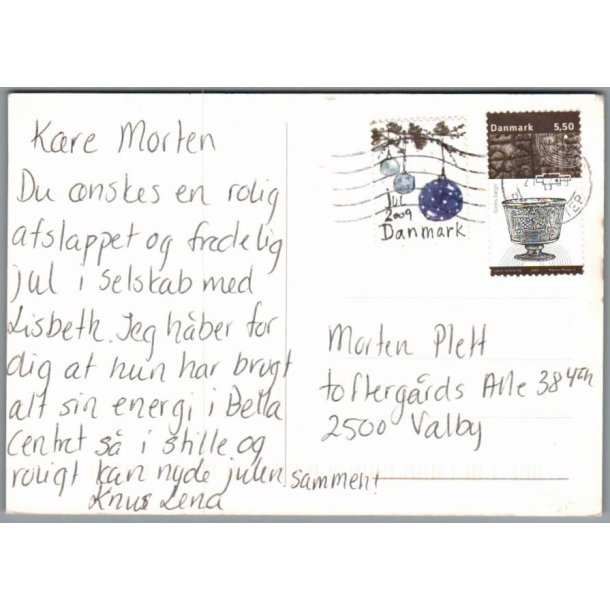 Kære Morten
Du ønskes en rolig
afslappet og fredelig
jul i selskab med
Lisbeth. Jeg håber for
dig at hun har brugt
alt sin energi i Bella
Centret så i stille og
roligt kan nyde julen sammen!
Knus Lena
Jul
2009
Danmark
Danmark 5,50
Morten Plett
Toftergårds Alle 38 4th
2500 Valby